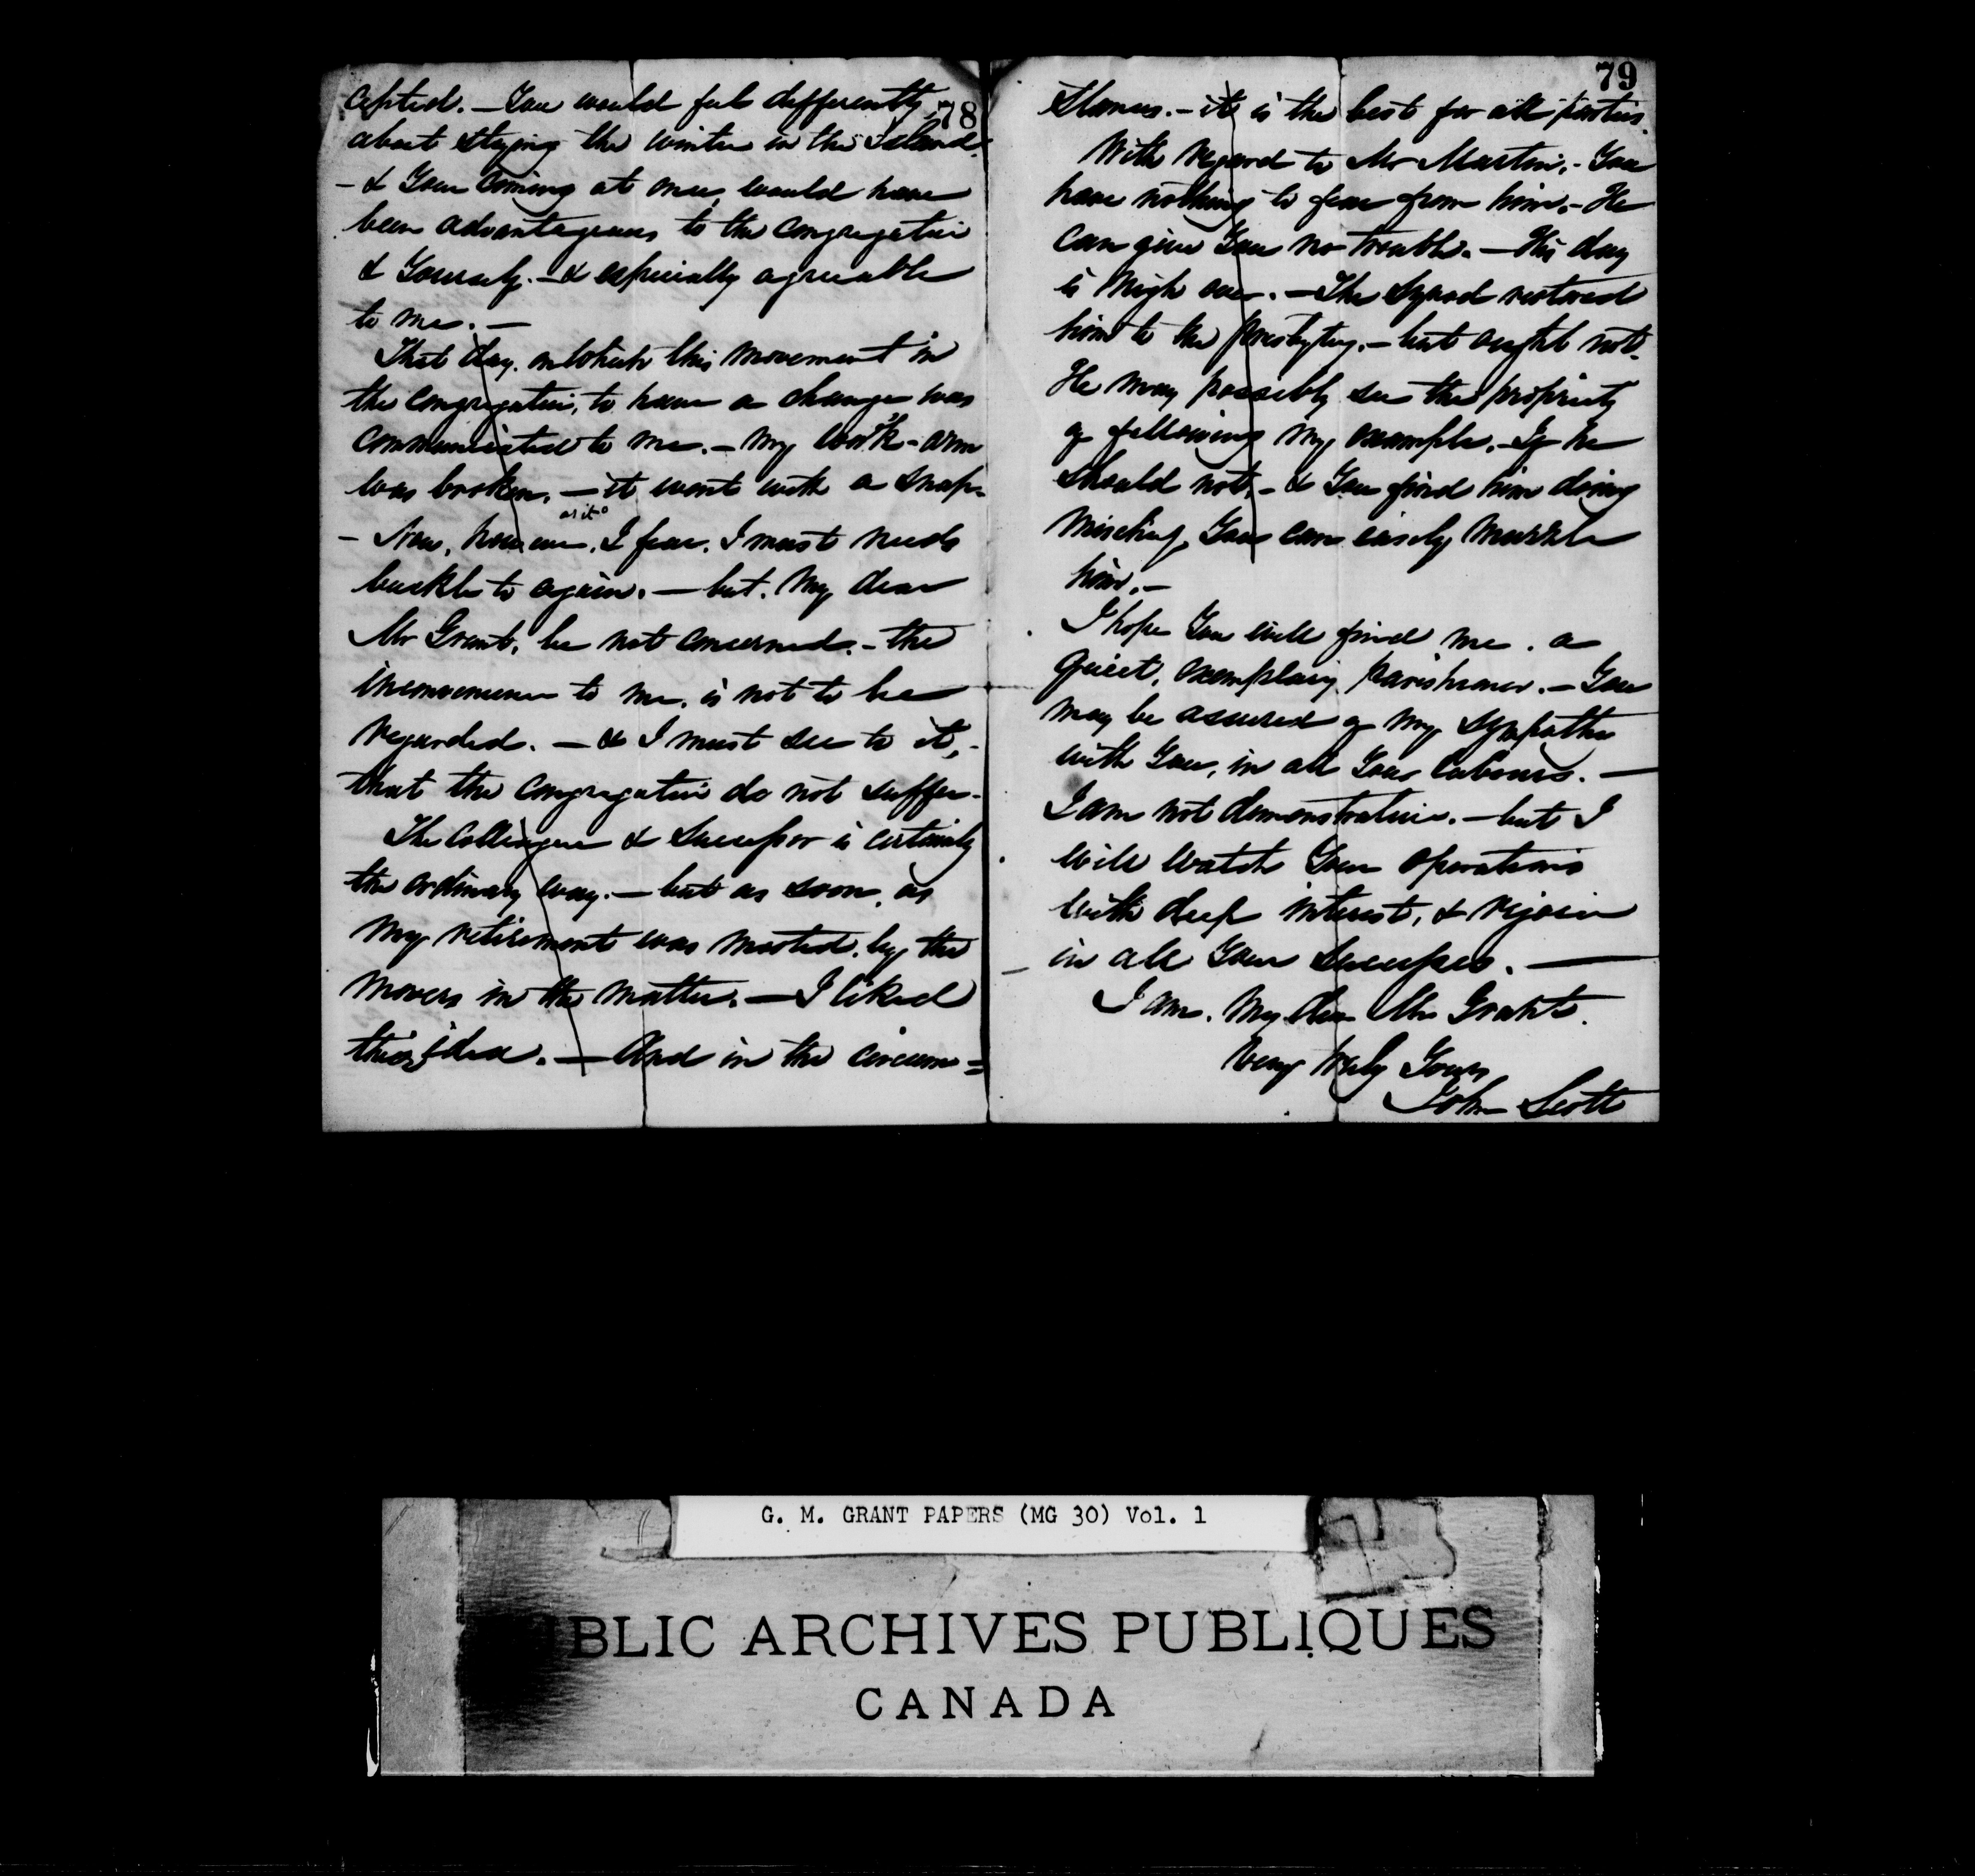 78
cepted. — You would feel differently
about staying the winter in the Island
- & Your coming at once, would have
been advantageous to the congregation
& Yourself. — & especially agreeable
to me. —
That day, on which this movement in
the congregation, to have a change was
communicated to me. — my work-arm
was broken. — it went with a snap.
as it
- Now, however, I fear, I must needs
buckle to again. — but, My dear
Mr Grant, be not concerned. - the
inconvenience to me, is not to be
regarded. — & I must see to it, -
that the congregation do not suffer.
The Colleague & Successor is certainly
the ordinary way. — but as soon, as
My retirement was mooted, by the
movers in the matter. — I liked
this idea. — And in the circum=
79
stances. - it is the best for all parties.
With regard to Mr Martin, - You
have nothing to fear from him. - He
can give You no trouble. — His day
is Nigh over. — The Synod restored
him to the Presbytery. — but ought not.
He may possibly see the propriety
of following My example. - If he
should not, - & You find him doing
Mischief, You can easily Muzzle
him. -
I hope You will find me, a
quiet, exemplary parishioner. — You
may be assured of my sympathy
with You, in all Your labours. —
I am not demonstrative. — but I
will watch Your operations
with deep interest, & rejoice
in all Your success. —
I am, My dear Mr Grant.
Very truly Yours
John Scott
G. M. GRANT PAPERS (MG 30) Vol. 1
BLIC ARCHIVES PUBLIQUES
CANADA